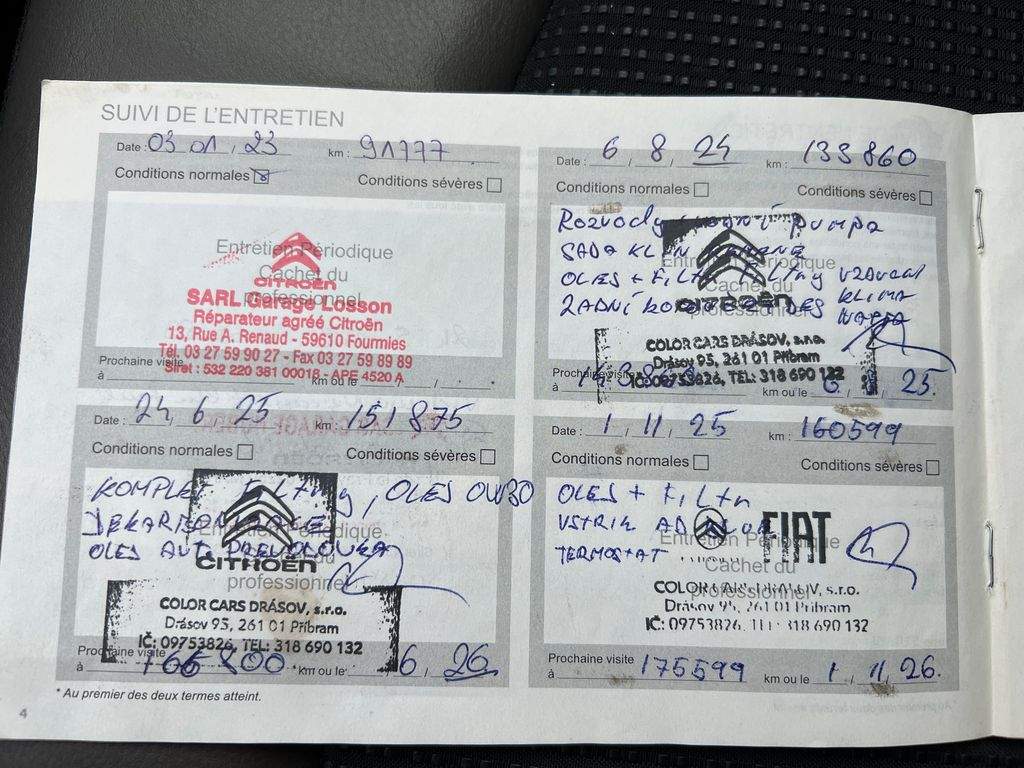 SUIVI DE L'ENTRETIEN
Date : 03 01 23 km : 91777
Conditions normales Conditions sévères
Entretien Périodique
Cachet du
professionnel
CITROËN
SARL Garage Losson
Réparateur agréé Citroën
13, Rue A. Renaud - 59610 Fourmies
Tél. 03 27 59 90 27 - Fax 03 27 59 89 89
Siret : 532 220 381 00018 - APE 4520 A
Prochaine visite
à km ou le / /
Date : 6 / 8 / 24 km : 133860
Conditions normales Conditions sévères
Rozvody, pumpa
SADA
OLEJ + FILTR, Filtry vzduch
ZADNÍ KLIMA
Entretien Périodique
Cachet du
professionnel
CITROËN
COLOR CARS DRÁSOV, s.r.o.
Drásov 95, 261 01 Příbram
IČ: 09753826, TEL: 318 690 132
Prochaine visite
à km ou le 6 / / 25.
Date : 24 / 6 / 25 km : 151875
Conditions normales Conditions sévères
KOMPLET Filtry, OLEJ 0W30
DEKARBONIZACE
OLEJ AUT. PREVODOVKA
Entretien Périodique
professionnel
CITROËN
COLOR CARS DRÁSOV, s.r.o.
Drásov 95, 261 01 Příbram
IČ: 09753826, TEL: 318 690 132
Prochaine visite
à km ou le 6 / 26
Date : 1 / 11 / 25 km : 160599
Conditions normales Conditions sévères
OLEJ + FILTR
VSTRIK
TERMOSTAT
FIAT
Entretien Périodique
Cachet du
professionnel
COLOR CARS DRÁSOV, s.r.o.
Drásov 95, 261 01 Příbram
IČ: 09753826, TEL: 318 690 132
Prochaine visite
à 175599 km ou le 1 / 11 / 26.
* Au premier des deux termes atteint.
4